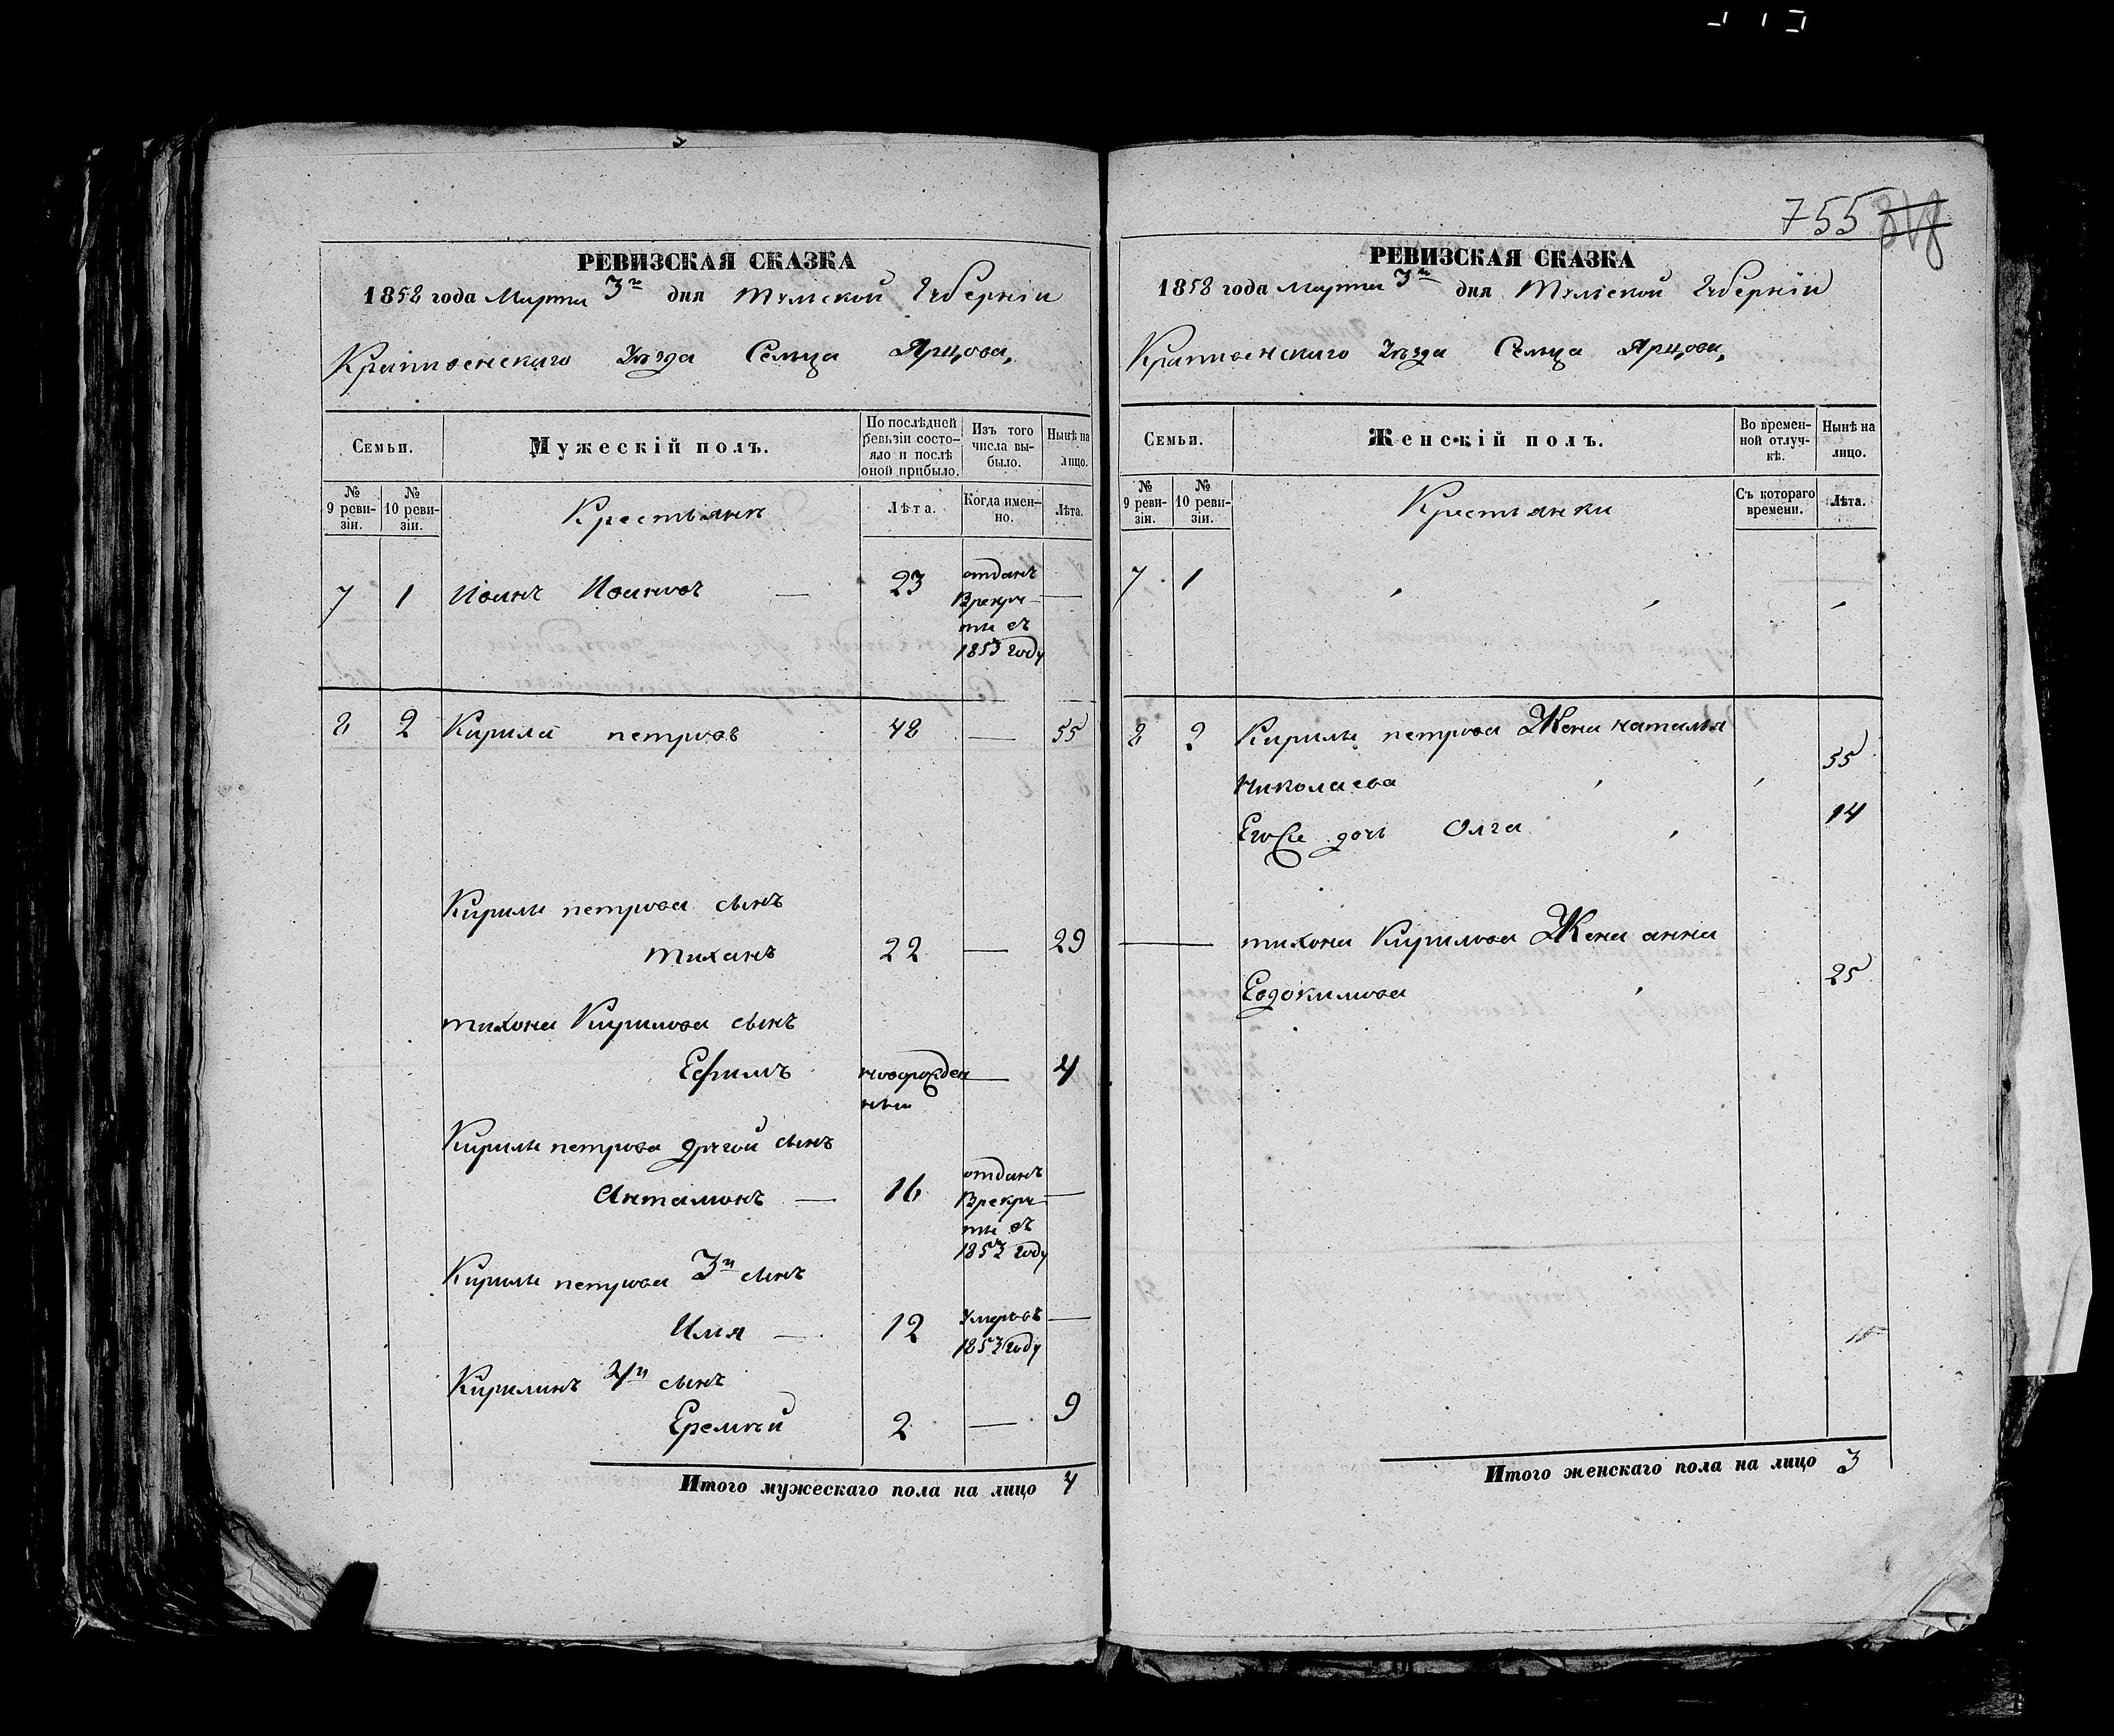 755 318
РЕВИЗСКАЯ СКАЗКА
1858 года Марта 3го дня Тульской Губерніи
Крапивенскаго Уѣзда Сельца Ярцова,
Семьи.
Мужескій полъ.
По послѣдней ревизіи состояло и послѣ оной прибыло.
Изъ того числа выбыло.
Нынѣ на лицо.
№ 9 ревизіи.
№ 10 ревизіи.
Крестьянъ
Лѣта.
Когда именно.
Лѣта.
7 1 Иванъ Ивановъ — 23 отданъ —
Врекру-
ты въ
1853 году
8 2 Кирила петровъ 48 — 55
Кирилы петрова сынъ
тиханъ 22 — 29
тихона Кирилова сынъ
Ефимъ новорожден — 4
ный
Кирилы петрова другой сынъ
Антамонъ — 16 отданъ —
Врекру-
ты въ
1853 году
Кирилы петрова 3й сынъ
Илья — 12 Умеръ въ —
1853 году
Кирилинъ 4й сынъ
Еремѣй 2 — 9
Итого мужескаго пола на лицо 4
РЕВИЗСКАЯ СКАЗКА
1858 года Марта 3го дня Тульской Губерніи
Крапивенскаго Уѣзда Сельца Ярцова,
Семьи.
Женскій полъ.
Во временной отлучкѣ.
Нынѣ на лицо.
№ 9 ревизіи.
№ 10 ревизіи.
Крестьянки
Съ котораго времени.
Лѣта.
7 1
8 2 Кирилы петрова Жена наталья
николаева 55
Его Же дочь Олга 14
тихона Кирилова Жена анна
Евдокимова 25
Итого женскаго пола на лицо 3